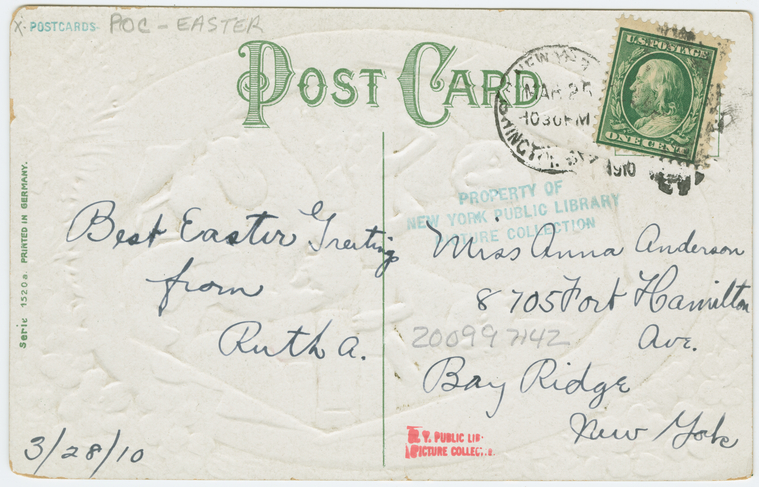 X. POSTCARDS POC - EASTER
POST CARD
U.S. POSTAGE
ONE CENT
NEW YORK
MAR 25
1030 PM
1910
PROPERTY OF
NEW YORK PUBLIC LIBRARY
PICTURE COLLECTION
Serie 1520a. PRINTED IN GERMANY.
Best Easter Greetings
from
Ruth A.
3/28/10
Miss Anna Anderson
8705 Fort Hamilton
Ave.
200997142
Bay Ridge
New York
N. Y. PUBLIC LIB.
PICTURE COLLEC